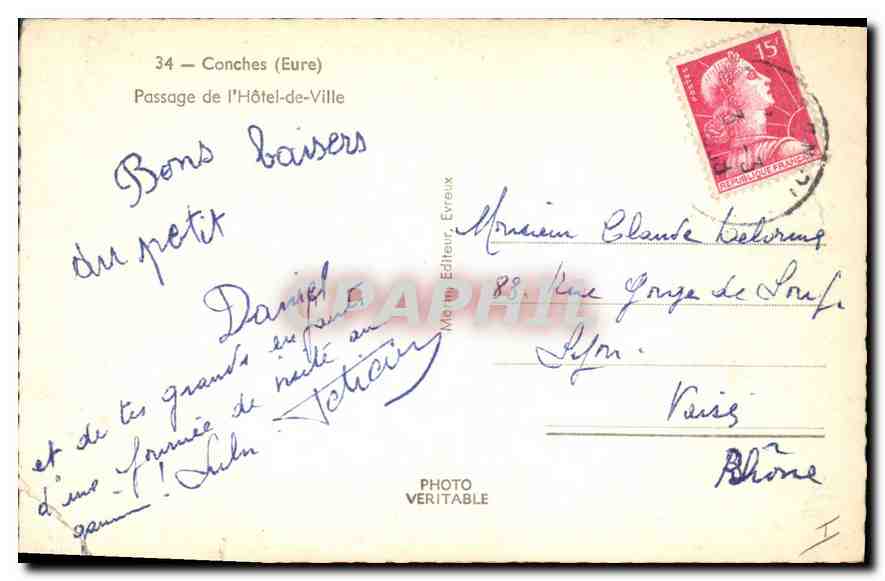 34 — Conches (Eure)
Passage de l'Hôtel-de-Ville
Bons baisers
du petit
Daniel
et de tes grands enfants
d'une journée de visite au
gamin!
15f
POSTES
REPUBLIQUE FRANCAISE
Editeur, Evreux
CPAPHIL
Monsieur Claude Delorme
88. Rue Gorge de Loup
Lyon.
Vaise
Rhône
PHOTO
VERITABLE
I